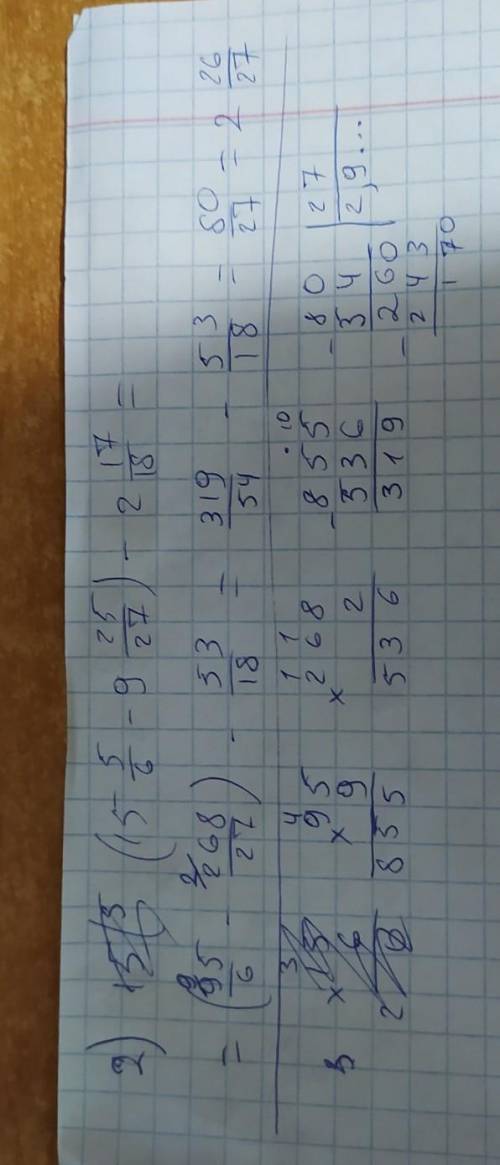 2) (15 5/6 - 9 25/27) - 2 17/18 =
= (95/6 - 268/27) - 53/18 = 319/54 - 53/18 = 80/27 = 2 26/27
95 × 9 = 855
268 × 2 = 536
855 - 536 = 319
80 | 27
54 | 2,9...
260
243
170